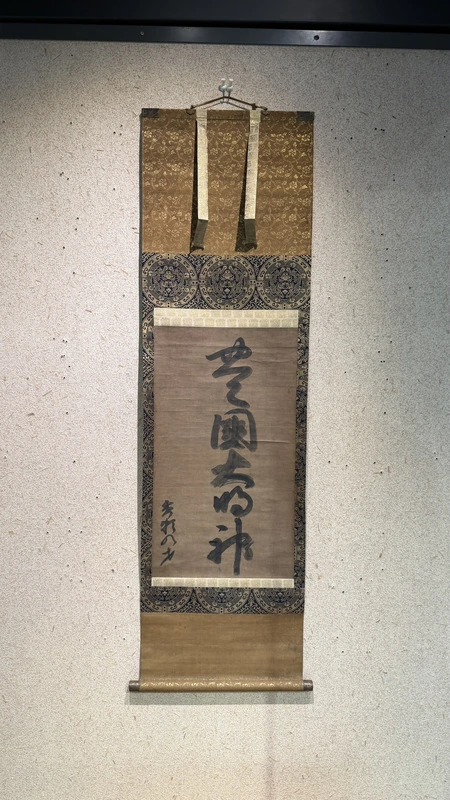 豊国大明神
秀頼八才